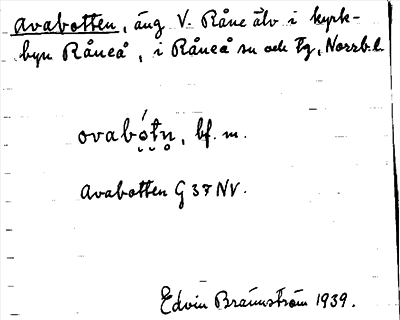 Avabotten, äng V. Råne älv i kyrk-
byn Råneå, i Råneå sn och tg, Norrb. l.
ovabó̤tn̥, bf. m.
Avabotten G 37 NV.
Edvin Brännström 1939.